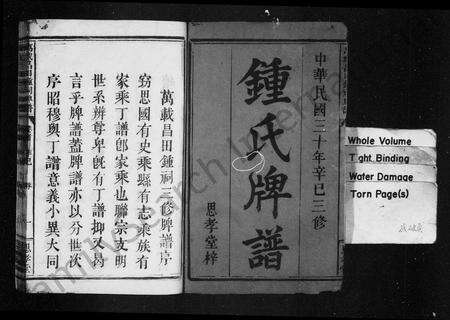 中華民國三十年辛巳三修
鍾氏牌譜
思孝堂梓
萬載昌田鍾祠三修牌譜序
竊思國有史乘縣有志乘族有
家乘丁譜卽家乘也聯宗支明
世系辨尊卑旣有丁譜抑
言乎牌譜蓋牌譜亦以分世次
序昭穆與丁譜意義小異大同
Whole Volume
Tight Binding
Water Damage
Torn Page(s)